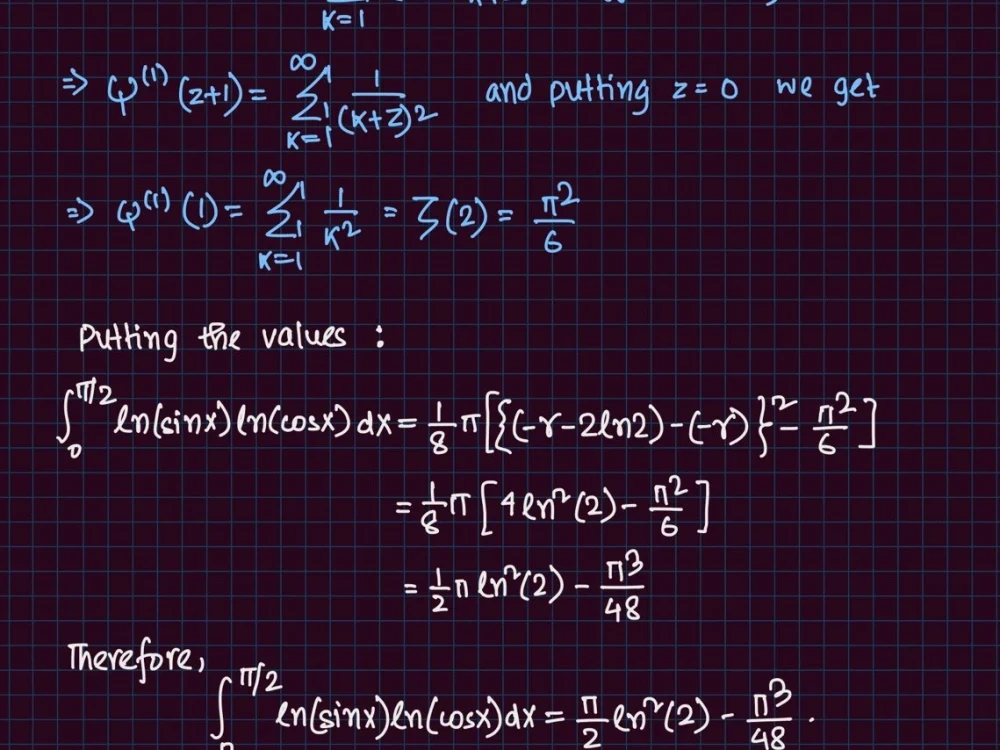 K=1
=> ψ⁽¹⁾(z+1) = ∞ Σ K=1 1/(K+z)² and putting z = 0 we get
=> ψ⁽¹⁾(1) = ∞ Σ K=1 1/K² = ζ(2) = π²/6
Putting the values :
∫₀^π/2 ln(sinx) ln(cosx) dx = 1/8 π [{(-γ-2ln2)-(-γ)}² - π²/6]
= 1/8 π [4ln²(2) - π²/6]
= 1/2 π ln²(2) - π³/48
Therefore,
∫₀^π/2 ln(sinx) ln(cosx) dx = π/2 ln²(2) - π³/48 .